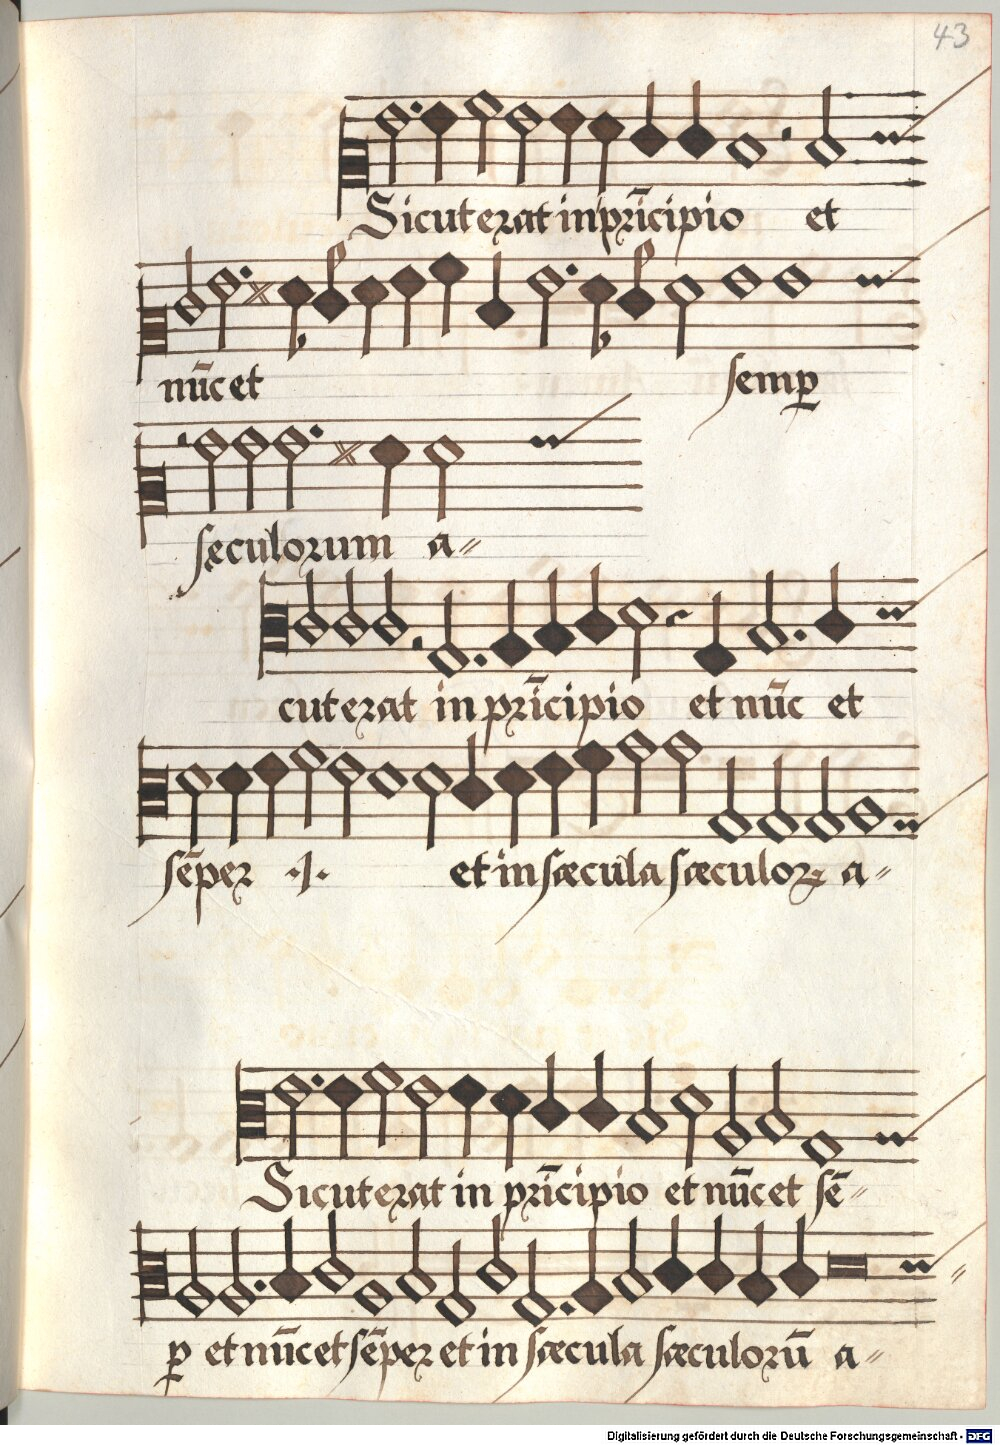 43
Sicut erat in prĩcipio et
nũc et semꝑ
sęculorum a〃
cut erat in prĩcipio et nũc et
sẽper ·J· et in sæcula sæculoꝝ a〃
Sicut erat in prĩcipio et nũc et sẽ〃
ꝑ et nũc et sẽper et in sæcula sæculorũ a〃
Digitalisierung gefördert durch die Deutsche Forschungsgemeinschaft - DFG